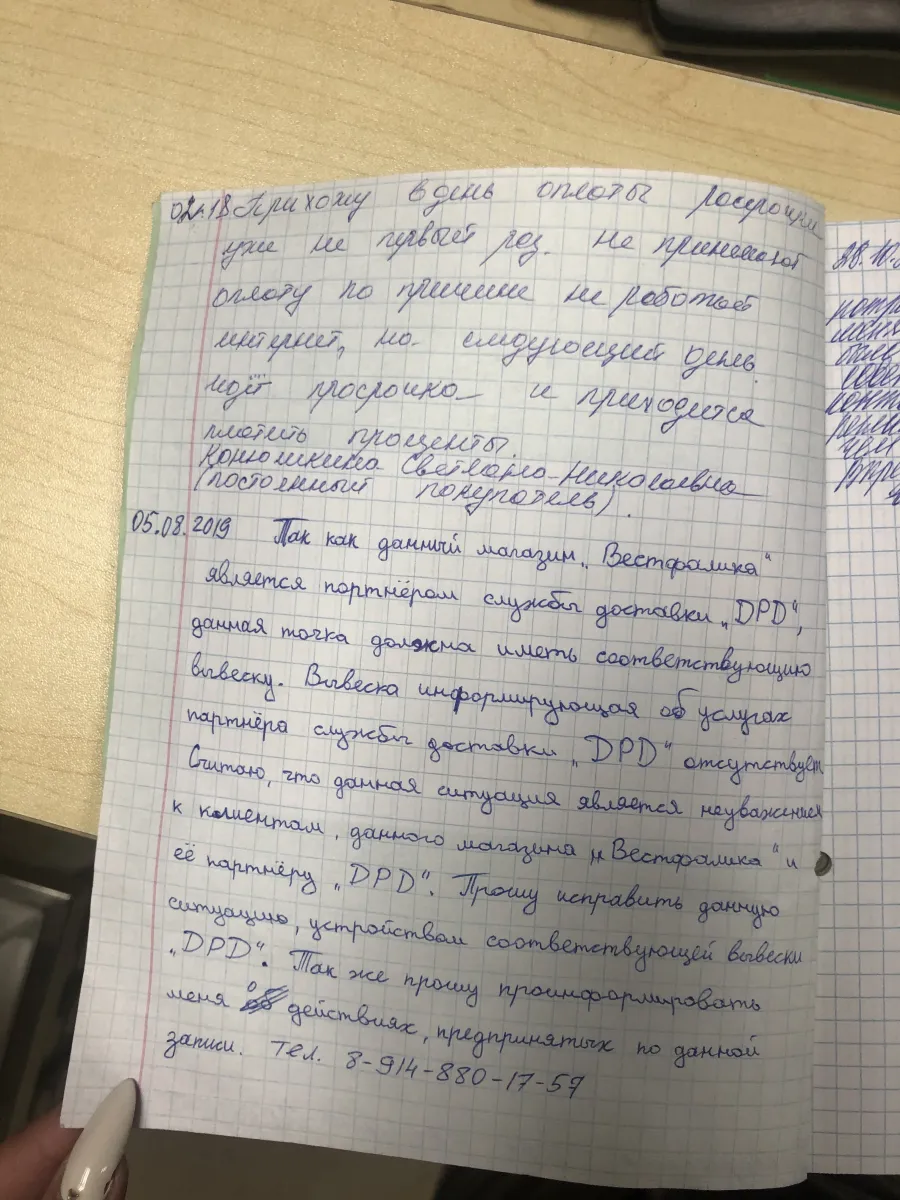 02.18 Прихожу в день оплоты россрочки
уже не первый роз. Не принемают
оплату по причине не работает
интернет, на следующий день
идёт просрочка и приходится
платить проценты.
Конюшкина Светлана Николаевна
(постоянный покупатель).
05.08.2019 Так как данный магазин „Вестфалика“
является партнёром службы доставки „DPD“,
данная точка должна иметь соответствующую
вывеску. Вывеска информирующая об услугах
партнёра службы доставки „DPD“ отсутствует
Считаю, что данная ситуация является неуважением
к клиентам, данного магазина „Вестфалика“ и
её партнёру „DPD“. Прошу исправить данную
ситуацию, устройством соответствующей вывески
„DPD“. Так же прошу проинформировать
меня о действиях, предпринятых по данной
записи. Тел. 8-914-880-17-57
28.10